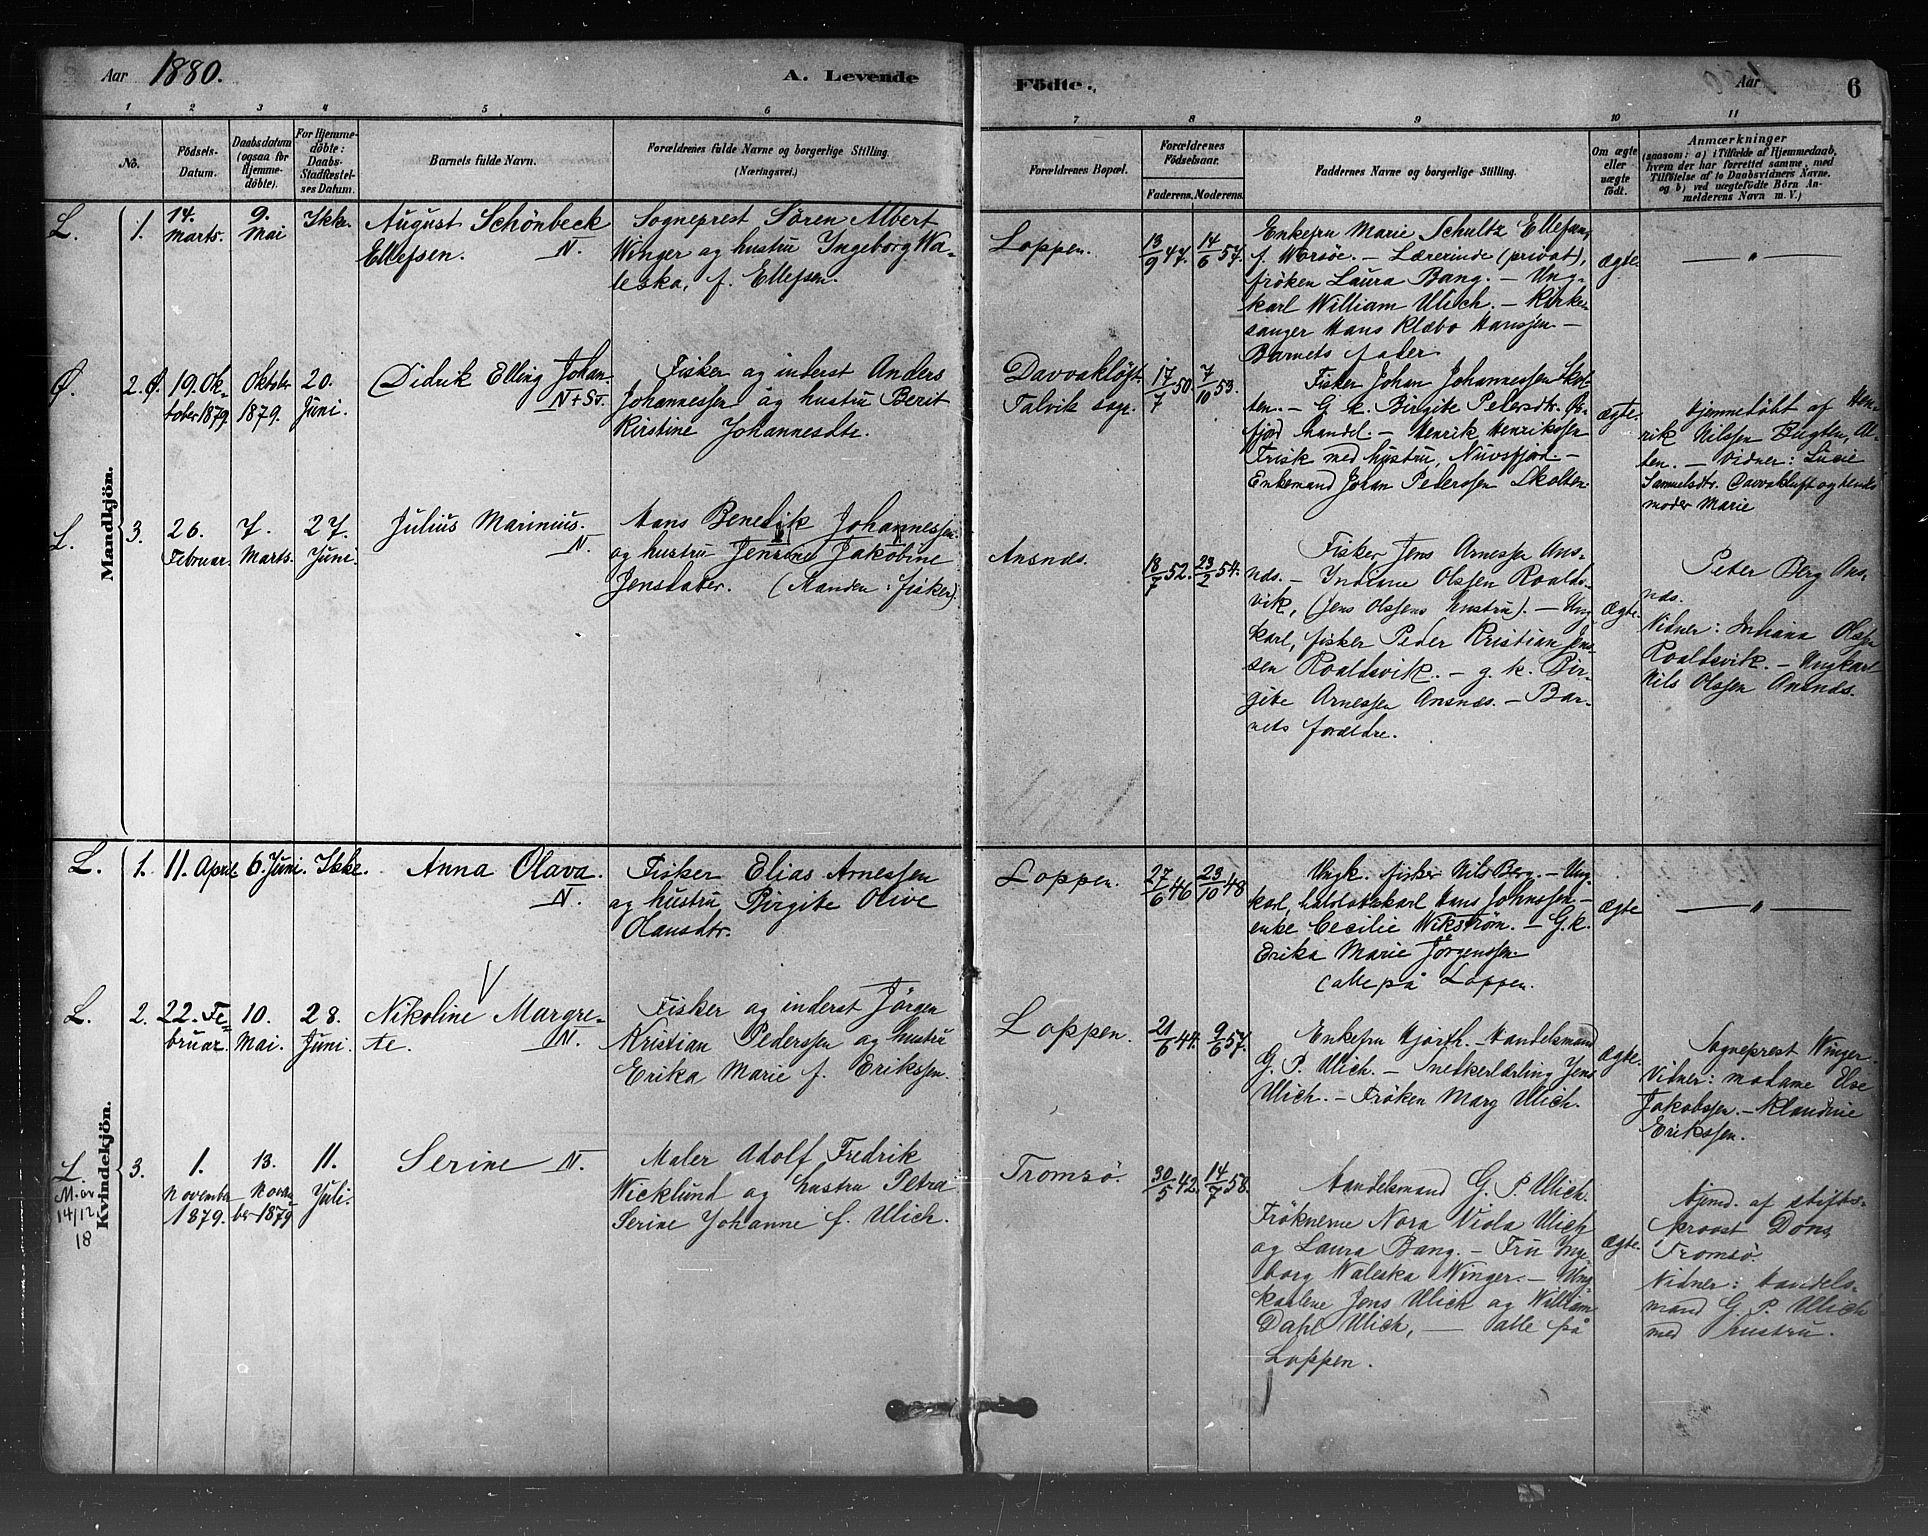 Aar 1880.
A. Levende
Födte.
Aar
6
1 2 3 4 5 6 7 8 9 10 11
No.
Födsels-
Datum.
Daabsdatum
(ogsaa for
Hjemme-
döbte).
For Hjemme-
döbte:
Daabs-
Stadfæstel-
ses Datum.
Barnets fulde Navn.
Forældrenes fulde Navne og borgerlige Stilling.
(Næringsvei.)
Forældrenes Bopæl.
Forældrenes
Födselsaar.
Faderens. Moderens.
Faddernes Navne og borgerlige Stilling.
Om ægte
eller
uægte
födt.
Anmærkninger
(saasom: a) i Tilfælde af Hjemmedaab,
hvem der har forrettet samme, med
Tilföielse af to Daabsvidners Navne,
og b) ved uægtefödte Börn An-
melderens Navn m. V.)
Mandkjön.
L. 1.
14.
Marts.
9.
Mai
Ikke.
August Schönbeck
Ellefsen. N.
Sogneprest Sören Albert
Winger og hustru Ingeborg Wa-
leska, f. Ellefsen.
Loppen.
13/9 47.
14/6 57.
Enkefru Marie Schultz Ellefsen,
f. Worsöe. – Lærerinde (privat),
fröken Laura Bang. – Ung-
karl William Ulich. – Kirke-
sanger Hans Klæbo Hansen –
Barnets fader
ægte.
— " —
Ø. 2. Ø.
19. Ok-
tober 1879.
Oktober
1879.
20.
Juni.
Didrik Elling Johan.
N + Sv.
Fisker og inderst Anders
Johannessen og hustru Berit
Kirstine Johannesdtr.
Davvakløft
Talvik sogn.
17/7 50.
7/10 53.
Fisker Johan Johannessen Skol-
ten. – G. k. Birgite Petersdtr. Øx-
fjord handel. – Henrik Henriksen
Frisk med hustru, Nuvsfjord. –
Enkemand Johan Pederssen Skolten.
ægte.
Hjemmedöbt af Hen-
rik Nilssen Bugten, Al-
ten. – Vidner: Lucie
Samuelsdtr. Davvakluft og hendes
moder Marie
L. 3.
26.
Februar.
7.
Marts.
27.
Juni.
Julius Marinius.
N.
Hans Benedik Johannessen
og hustru Jensine Jakobine
Jensdater. (Manden: fisker).
Ansnæs.
18/7 52.
23/2 54.
Fisker Jens Arnessen Ans-
næs. – Indiane Olssen Roalds-
vik, (Jens Olssens hustru). – Ung-
karl, fisker Peder Kristian Jens-
sen Roaldsvik. – g. k. Bir-
gite Arnessen Ansnæs. – Bar-
nets forældre.
ægte.
Peter Berg Ans-
næs.
Vidner: Indiana Olssen
Roaldsvik. – Ungkarl
Nils Olssen Ansnæs.
Kvindekjön.
L. 1.
11. April.
6. Juni.
Ikke.
Anna Olava.
N.
Fisker Elias Arnessen
og hustru Birgite Olive
Olausdtr.
Loppen.
27/6 46
23/10 48
Ungk. fisker Nils Berg. – Ung-
karl, Hans Johnssen –
enke Cecilie Wikström. – G. k.
Erika Marie Jörgenssen.
alle på Loppen.
ægte
— " —
L. 2.
22. Fe-
bruar.
10.
Mai.
28.
Juni.
V
Nikoline Margre-
te. N.
Fisker og inderst Jörgen
Kristian Pederssen og hustru
Erika Marie f. Erikssen.
Loppen.
21/6 44.
9/6 57.
Enkefru Hjorth. – Handelsmand
G. P. Ulich. – Snedkerlærling Jens
Ulich. – Fröken Marg Ulich.
ægte.
Sogneprest Winger.
Vidner: madame Else
Jakobssen. – Klaudine
Erikssen.
L. 3.
14/12
18
1.
November
1879.
13.
Novem-
ber 1879
11.
Juli.
Serine N.
Maler Adolf Fredrik
Wicklund og hustru Petra
Serine Johanne f. Ulich.
Tromsö.
30/5 42.
14/7 58.
Handelsmand G. P. Ulich.
Fröknerne Nora Viola Ulich
og Laura Bang. – Fru Inge-
borg Waleska Winger. – Ung-
karlene Jens Ulich og William
Dahl Ulich, – alle på
Loppen.
ægte.
Hjmd. af stifts-
provst Dons,
Tromsö.
Vidner: Handels-
mand G. P. Ulich
med hustru.